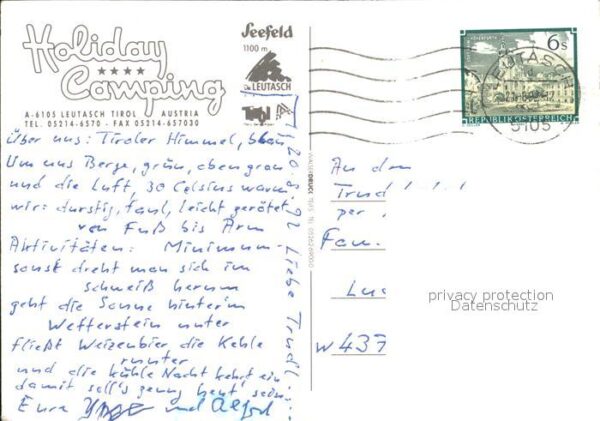 Holiday
Camping
A-6105 LEUTASCH TIROL AUSTRIA
TEL. 05214-6570 - FAX 05214-657030
Seefeld
1100 m
LEUTASCH
Tirol
20.8.92 Liebe Trudl...
Über uns: Tiroler Himmel, blau
Um uns Berge, grün, oben grau
und die Luft, 30 Celsius warm
wir: durstig, faul, leicht gerötet
von Fuß bis Arm
Aktivitäten: Minimum-
sonst dreht man sich im
schweiß herum
geht die Sonne hinter'm
Wetterstein unter
fließt Weizenbier die Kehle
runter
und die kühle Nacht kehrt ein
damit soll's genug heut' sein
Eure und
6 S
REPUBLIK ÖSTERREICH
LEUTASCH
6105
An den
Trud!...
per
Fam.
Lu
W 437
privacy protection
Datenschutz